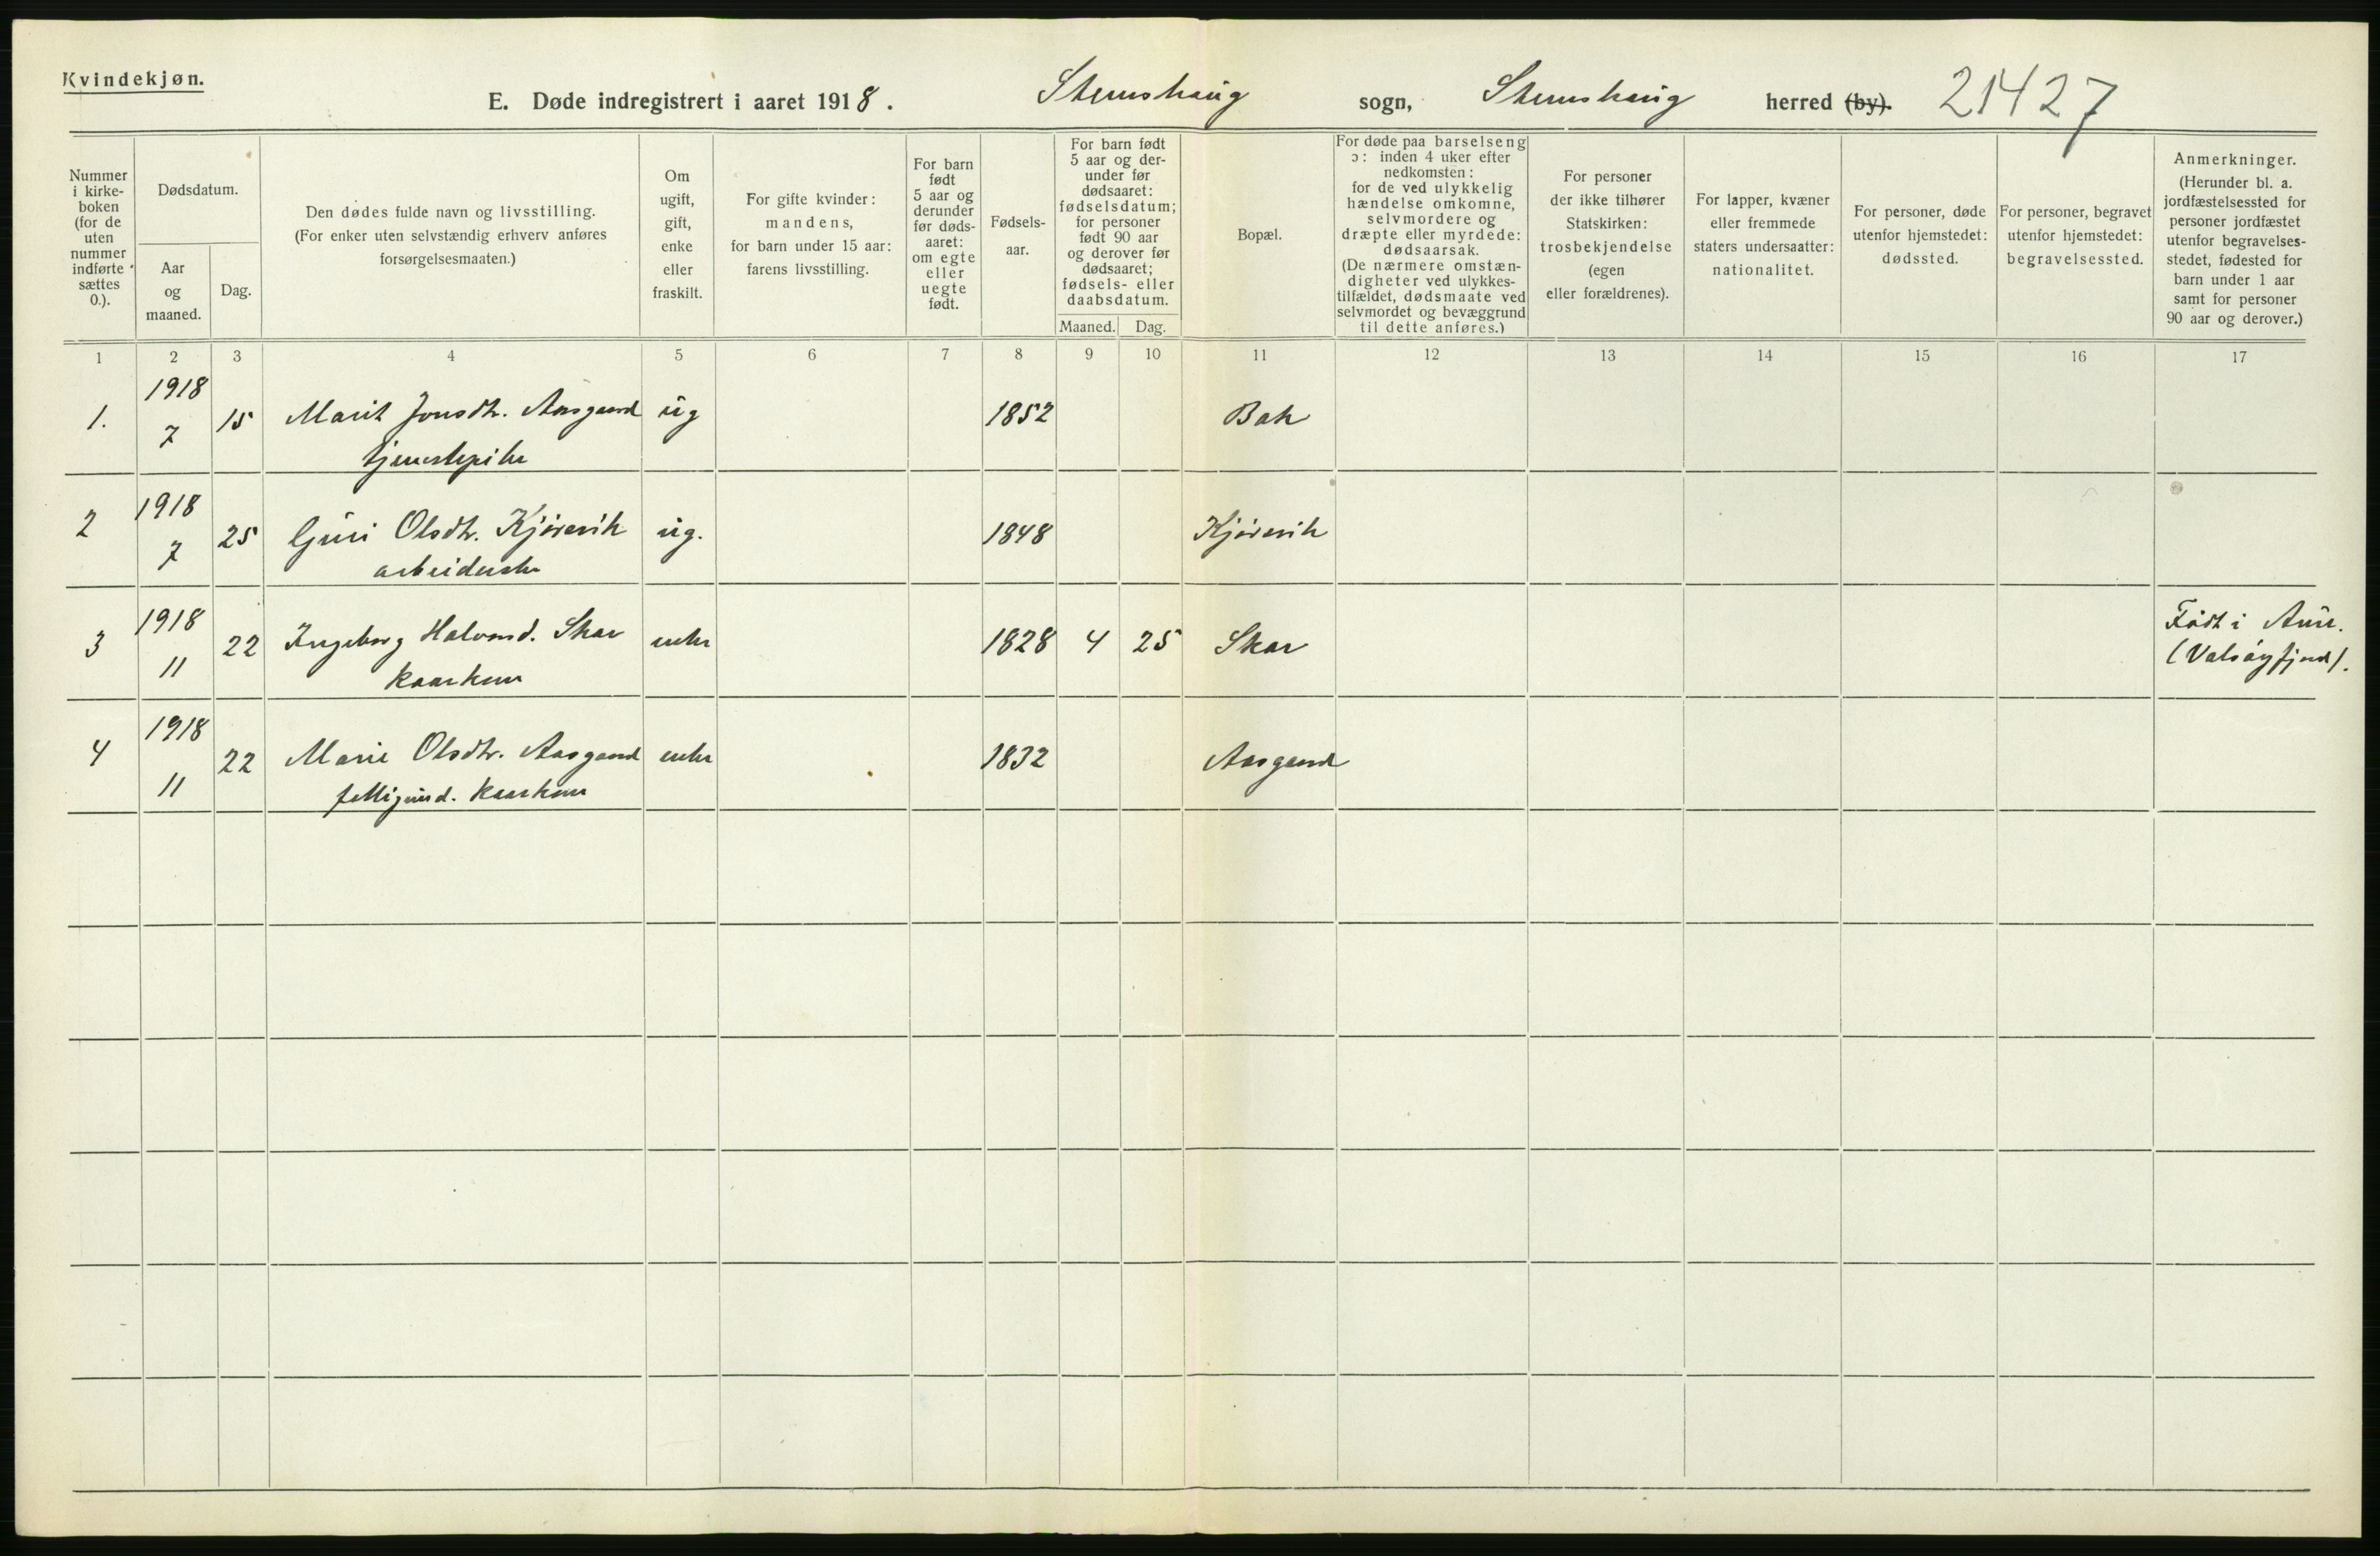 Kvindekjøn.
E. Døde indregistrert i aaret 1918. Stemshaug sogn, Stemshaug herred (by). 21427
Nummer
i kirke-
boken
(for de
uten
nummer
indførte
sættes
0.).
Dødsdatum.
Aar
og
maaned.
Dag.
Den dødes fulde navn og livsstilling.
(For enker uten selvstændig erhverv anføres
forsørgelsesmaaten.)
Om
ugift,
gift,
enke
eller
fraskilt.
For gifte kvinder:
mandens,
for barn under 15 aar:
farens livsstilling.
For barn
født
5 aar og
derunder
før døds-
aaret:
om egte
eller
uegte
født.
Fødsels-
aar.
For barn født
5 aar og der-
under før
dødsaaret:
fødselsdatum;
for personer
født 90 aar
og derover før
dødsaaret;
fødsels- eller
daabsdatum.
Maaned. Dag.
Bopæl.
For døde paa barselseng
ɔ: inden 4 uker efter
nedkomsten:
for de ved ulykkelig
hændelse omkomne,
selvmordere og
dræpte eller myrdede:
dødsaarsak.
(De nærmere omstæn-
digheter ved ulykkes-
tilfældet, dødsmaate ved
selvmordet og bevæggrund
til dette anføres.)
For personer
der ikke tilhører
Statskirken:
trosbekjendelse
(egen
eller forældrenes).
For lapper, kvæner
eller fremmede
staters undersaatter:
nationalitet.
For personer, døde
utenfor hjemstedet:
dødssted.
For personer, begravet
utenfor hjemstedet:
begravelsessted.
Anmerkninger.
(Herunder bl. a.
jordfæstelsessted for
personer jordfæstet
utenfor begravelses-
stedet, fødested for
barn under 1 aar
samt for personer
90 aar og derover.)
1 2 3 4 5 6 7 8 9 10 11 12 13 14 15 16 17
1918
1. 7 15 Marit Jonsdtr. Aasgaard ug 1852 Bak
tjenestepike
1918
2 7 25 Guri Olsdtr. Kjørsvik ug. 1848 Kjørsvik
arbeiderske
1918
3 11 22 Ingeborg Halvorsd. Skar enke 1828 4 25 Skar Født i Aure.
kaarkone (Valsøyfjord).
1918
4 11 22 Marie Olsdtr. Aasgaard enke 1832 Aasgaard
kaarkone